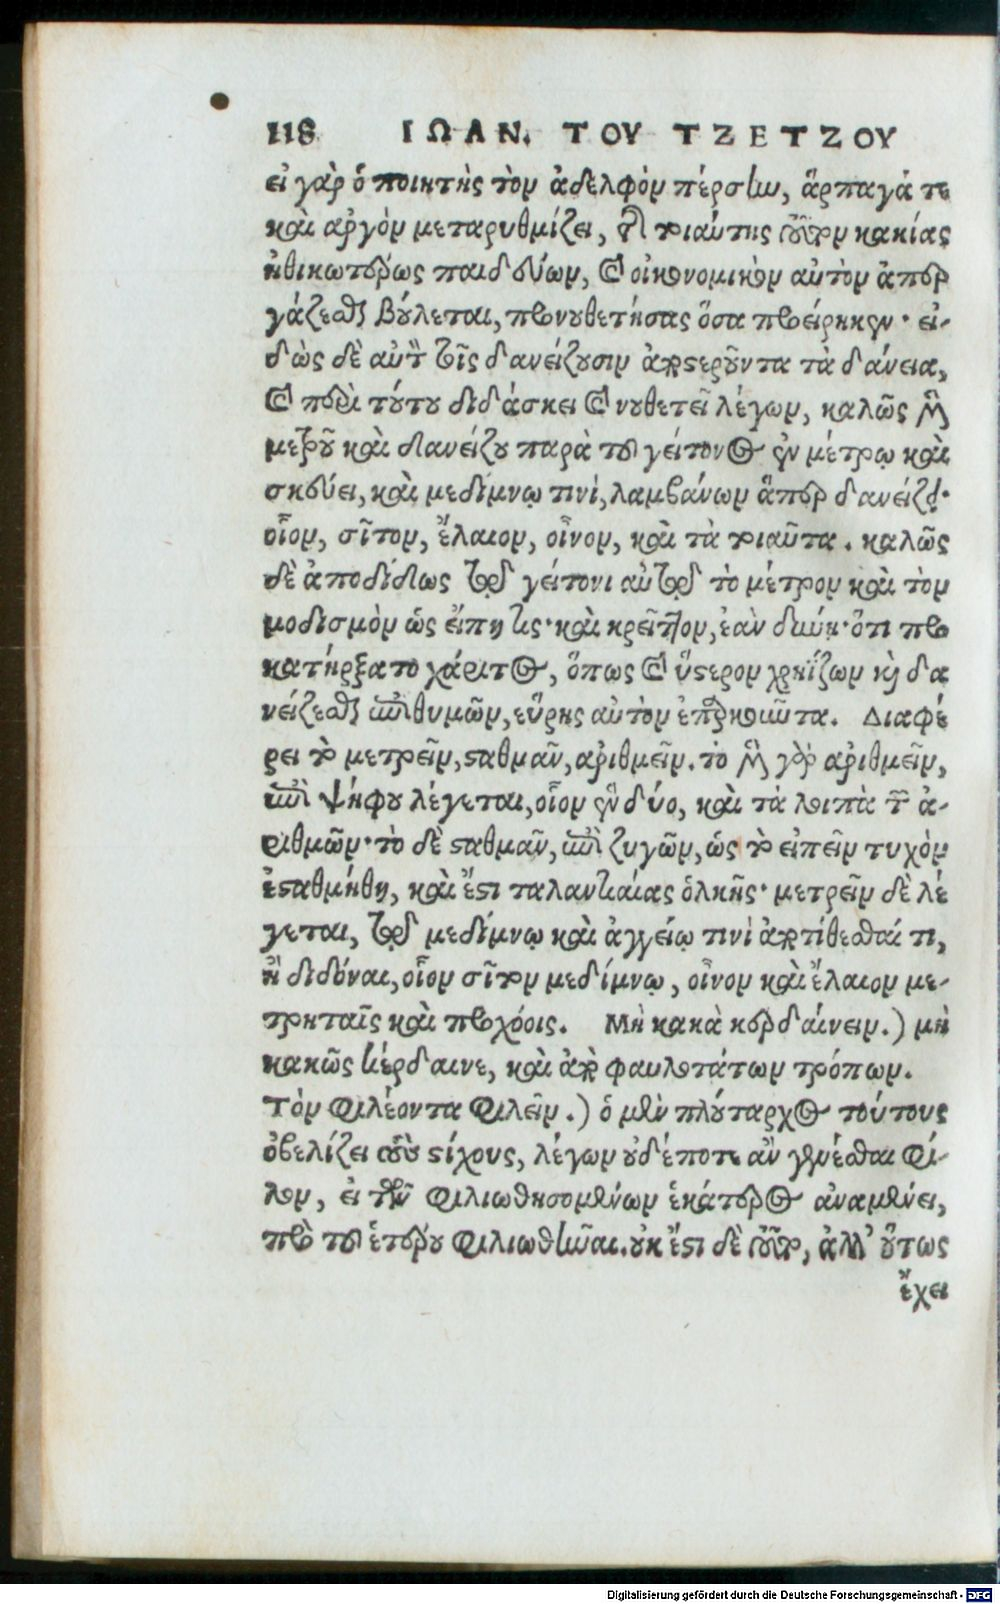 118 ΙΩΑΝ. ΤΟΥ ΤΖΕΤΖΟΥ
εἰ γὰρ ὁ ποιητὴς τὸν ἀδελφὸν πέρσην, ἅρπαγά τε
καὶ ἀργὸν μεταρυθμίζει, τῆς τοιαύτης τοῦτον κακίας
ἠθικωτέρως παιδεύων, καὶ οἰκονομικὸν αὐτὸν ἀπερ
γάζεσθαι βούλεται, προνουθετήσας ὅσα προείρηκεν· εἰ-
δὼς δὲ αὐτὸν τοῖς δανείζουσιν ἀποστεροῦντα τὰ δάνεια,
καὶ περὶ τούτου διδάσκει καὶ νουθετεῖ λέγων, καλῶς μὲν
μετροῦ καὶ δανείζου παρὰ τοῦ γείτονος ἐν μέτρῳ καὶ
σκεύει, καὶ μεδίμνῳ τινὶ, λαμβάνων ἅπερ δανείζῃ·
οἷον, σῖτον, ἔλαιον, οἶνον, καὶ τὰ τοιαῦτα. καλῶς
δὲ ἀποδίδως τῷ γείτονι αὐτῷ τὸ μέτρον καὶ τὸν
μοδισμὸν ὡς εἴπῃ τις· καὶ κρεῖττον, ἐὰν δύνῃ· ὅτι προ
κατήρξατο χάριτος, ὅπως καὶ ὕστερον χρηΐζων καὶ δα
νείζεσθαι ἐπιθυμῶν, εὕρῃς αὐτὸν ἐπαρκοῦντα. Διαφέ
ρει τὸ μετρεῖν, σταθμᾶν, ἀριθμεῖν. τὸ μὲν γὰρ ἀριθμεῖν,
ἐπὶ ψήφου λέγεται, οἷον ἓν δύο, καὶ τὰ λοιπὰ τῶν ἀ-
ριθμῶν· τὸ δὲ σταθμᾶν, ἐπὶ ζυγῶν, ὡς τὸ εἰπεῖν τυχὸν
ἐσταθμήθη, καὶ ἔστι ταλαντιαίας ὁλκῆς· μετρεῖν δὲ λέ
γεται, τῷ μεδίμνῳ καὶ ἀγγείῳ τινὶ ἀποτίθεσθαί τι,
ἢ διδόναι, οἷον σῖτον μεδίμνῳ, οἶνον καὶ ἔλαιον με-
τρηταῖς καὶ προχόοις. Μὴ κακὰ κερδαίνειν.) μὴ
κακῶς κέρδαινε, καὶ ἀπὸ φαυλοτάτων τρόπων.
Τὸν φιλέοντα φιλεῖν.) ὁ μὲν πλούταρχος τούτους
ὀβελίζει τοὺς στίχους, λέγων οὐδέποτε ἂν γενέσθαι φί-
λον, εἰ τῶν φιλιωθησομένων ἑκάτερος ἀναμένει,
πρὸ τοῦ ἑτέρου φιλιωθῆναι. οὐκ ἔστι δὲ τοῦτο, ἀλλ' οὕτως
ἔχει
Digitalisierung gefördert durch die Deutsche Forschungsgemeinschaft - DFG